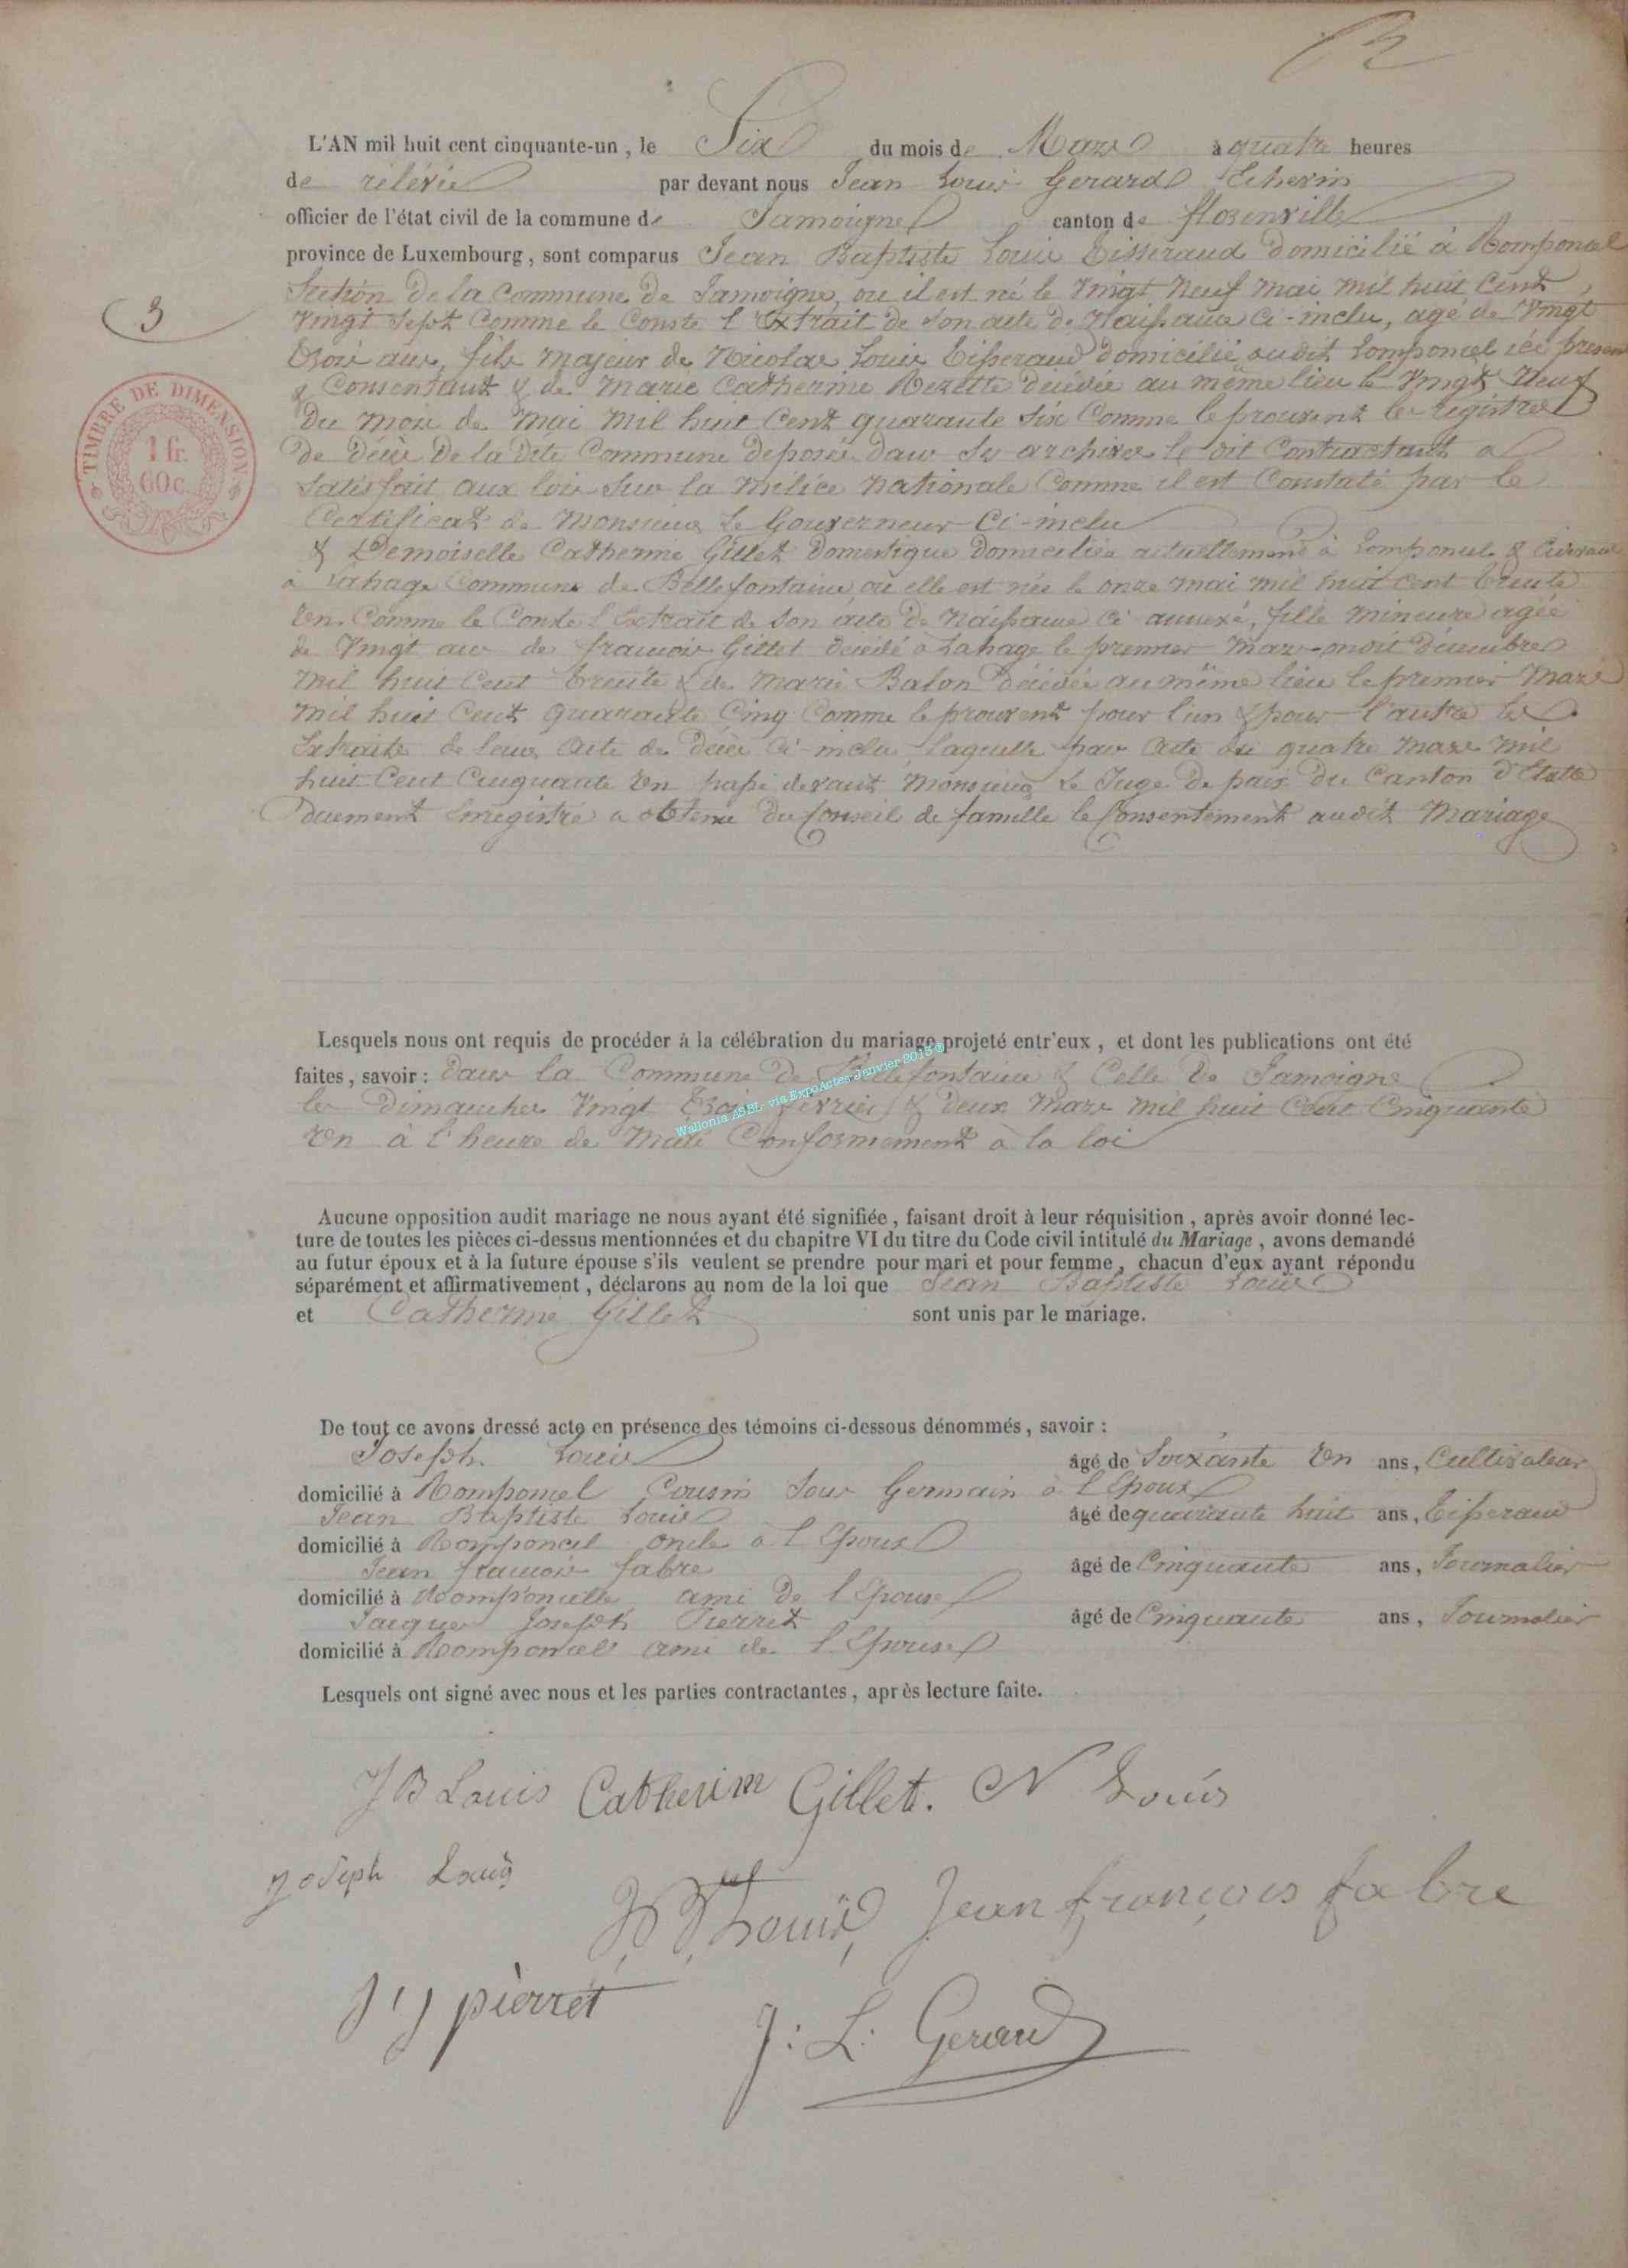 L'AN mil huit cent cinquante-un, le Six du mois de Mars à quatre heures
de rélévié par devant nous Jean Louis Gerard Echevin
officier de l'état civil de la commune de Jamoigne canton de florenville
province de Luxembourg, sont comparus Jean Baptiste Louis Tisserand domicilié à Romponcel
Section de la Commune de Jamoigne, ou il est né le Vingt Neuf Mai mil huit Cent
Vingt Sept Comme le Conste l'Extrait de son acte de Naissance Ci-inclu, agé de Vingt
Trois ans, fils Majeur de Nicolas Louis Tisserand domicilié audit Romponcel ici present
& Consentant & de Marie Catherine Rezette décédée au même lieu le Vingt Neuf
Du Mois de Mai Mil huit Cent quarante Six Comme le prouvent les registres
De décès De la Dite Commune déposés dans ses archives le dit Contractant a
Satisfait aux lois sur la Milice Nationale Comme il est Constaté par le
Certificat de Monsieur Le Gouverneur Ci-inclu
& Demoiselle Catherine Gillet domestique domiciliée actuellement à Romponcel &
à Lahage Commune de Bellefontaine, où elle est née le onze mai mil huit cent trente
Un Comme le Conste l'Extrait de Son acte de Naissance Ci annexé, fille mineure agée
de Vingt ans de francois Gillet décédé à Lahage le premier Mars-moit décembre
Mil huit Cent Trente & de Marie Balon décédée au même lieu le premier Mars
Mil huit Cent quarante Cinq Comme le prouvent pour l'un & pour l'autre les
Extraits de leurs Acte de Décès Ci-inclu, laquelle par Acte du quatre Mars Mil
huit Cent Cinquante Un passé devant Monsieur Le Juge De paix Du Canton d'Etalle
Duement Enregistré a obtenu Du Conseil de famille le Consentement audit Mariage
3
TIMBRE DE DIMENSION
1 fr.
60 c.
Lesquels nous ont requis de procéder à la célébration du mariage projeté entr'eux, et dont les publications ont été
faites, savoir : dans la Commune De Bellefontaine & Celle De Jamoigne
les Dimanches Vingt Trois fevrier & deux Mars Mil huit Cent Cinquante
Un à l'heure de Midi Conformement à la loi
Wallonia ASBL via ExpoActes Janvier 2013 ®
Aucune opposition audit mariage ne nous ayant été signifiée, faisant droit à leur réquisition, après avoir donné lec-
ture de toutes les pièces ci-dessus mentionnées et du chapitre VI du titre du Code civil intitulé du Mariage, avons demandé
au futur époux et à la future épouse s'ils veulent se prendre pour mari et pour femme, chacun d'eux ayant répondu
séparément et affirmativement, déclarons au nom de la loi que Jean Baptiste Louis
et Catherine Gillet sont unis par le mariage.
De tout ce avons dressé acte en présence des témoins ci-dessous dénommés, savoir :
Joseph Louis âgé de Soixante Un ans, Cultivateur
domicilié à Romponcel Cousin Sous Germain à l'Epoux
Jean Baptiste Louis âgé de quarante huit ans, Tisserand
domicilié à Romponcel oncle à l'Epoux
Jean francois fabre âgé de Cinquante ans, Journalier
domicilié à Romponcelle ami de l'Epouse
Jacques Joseph Pierret âgé de Cinquante ans, Journalier
domicilié à Romponcel ami de l'Epouse
Lesquels ont signé avec nous et les parties contractantes, après lecture faite.
J B Louis Catherine Gillet. N Louis
Joseph Louis
J B Louis Jean françois fabre
J J pierret
J: L: Gerard